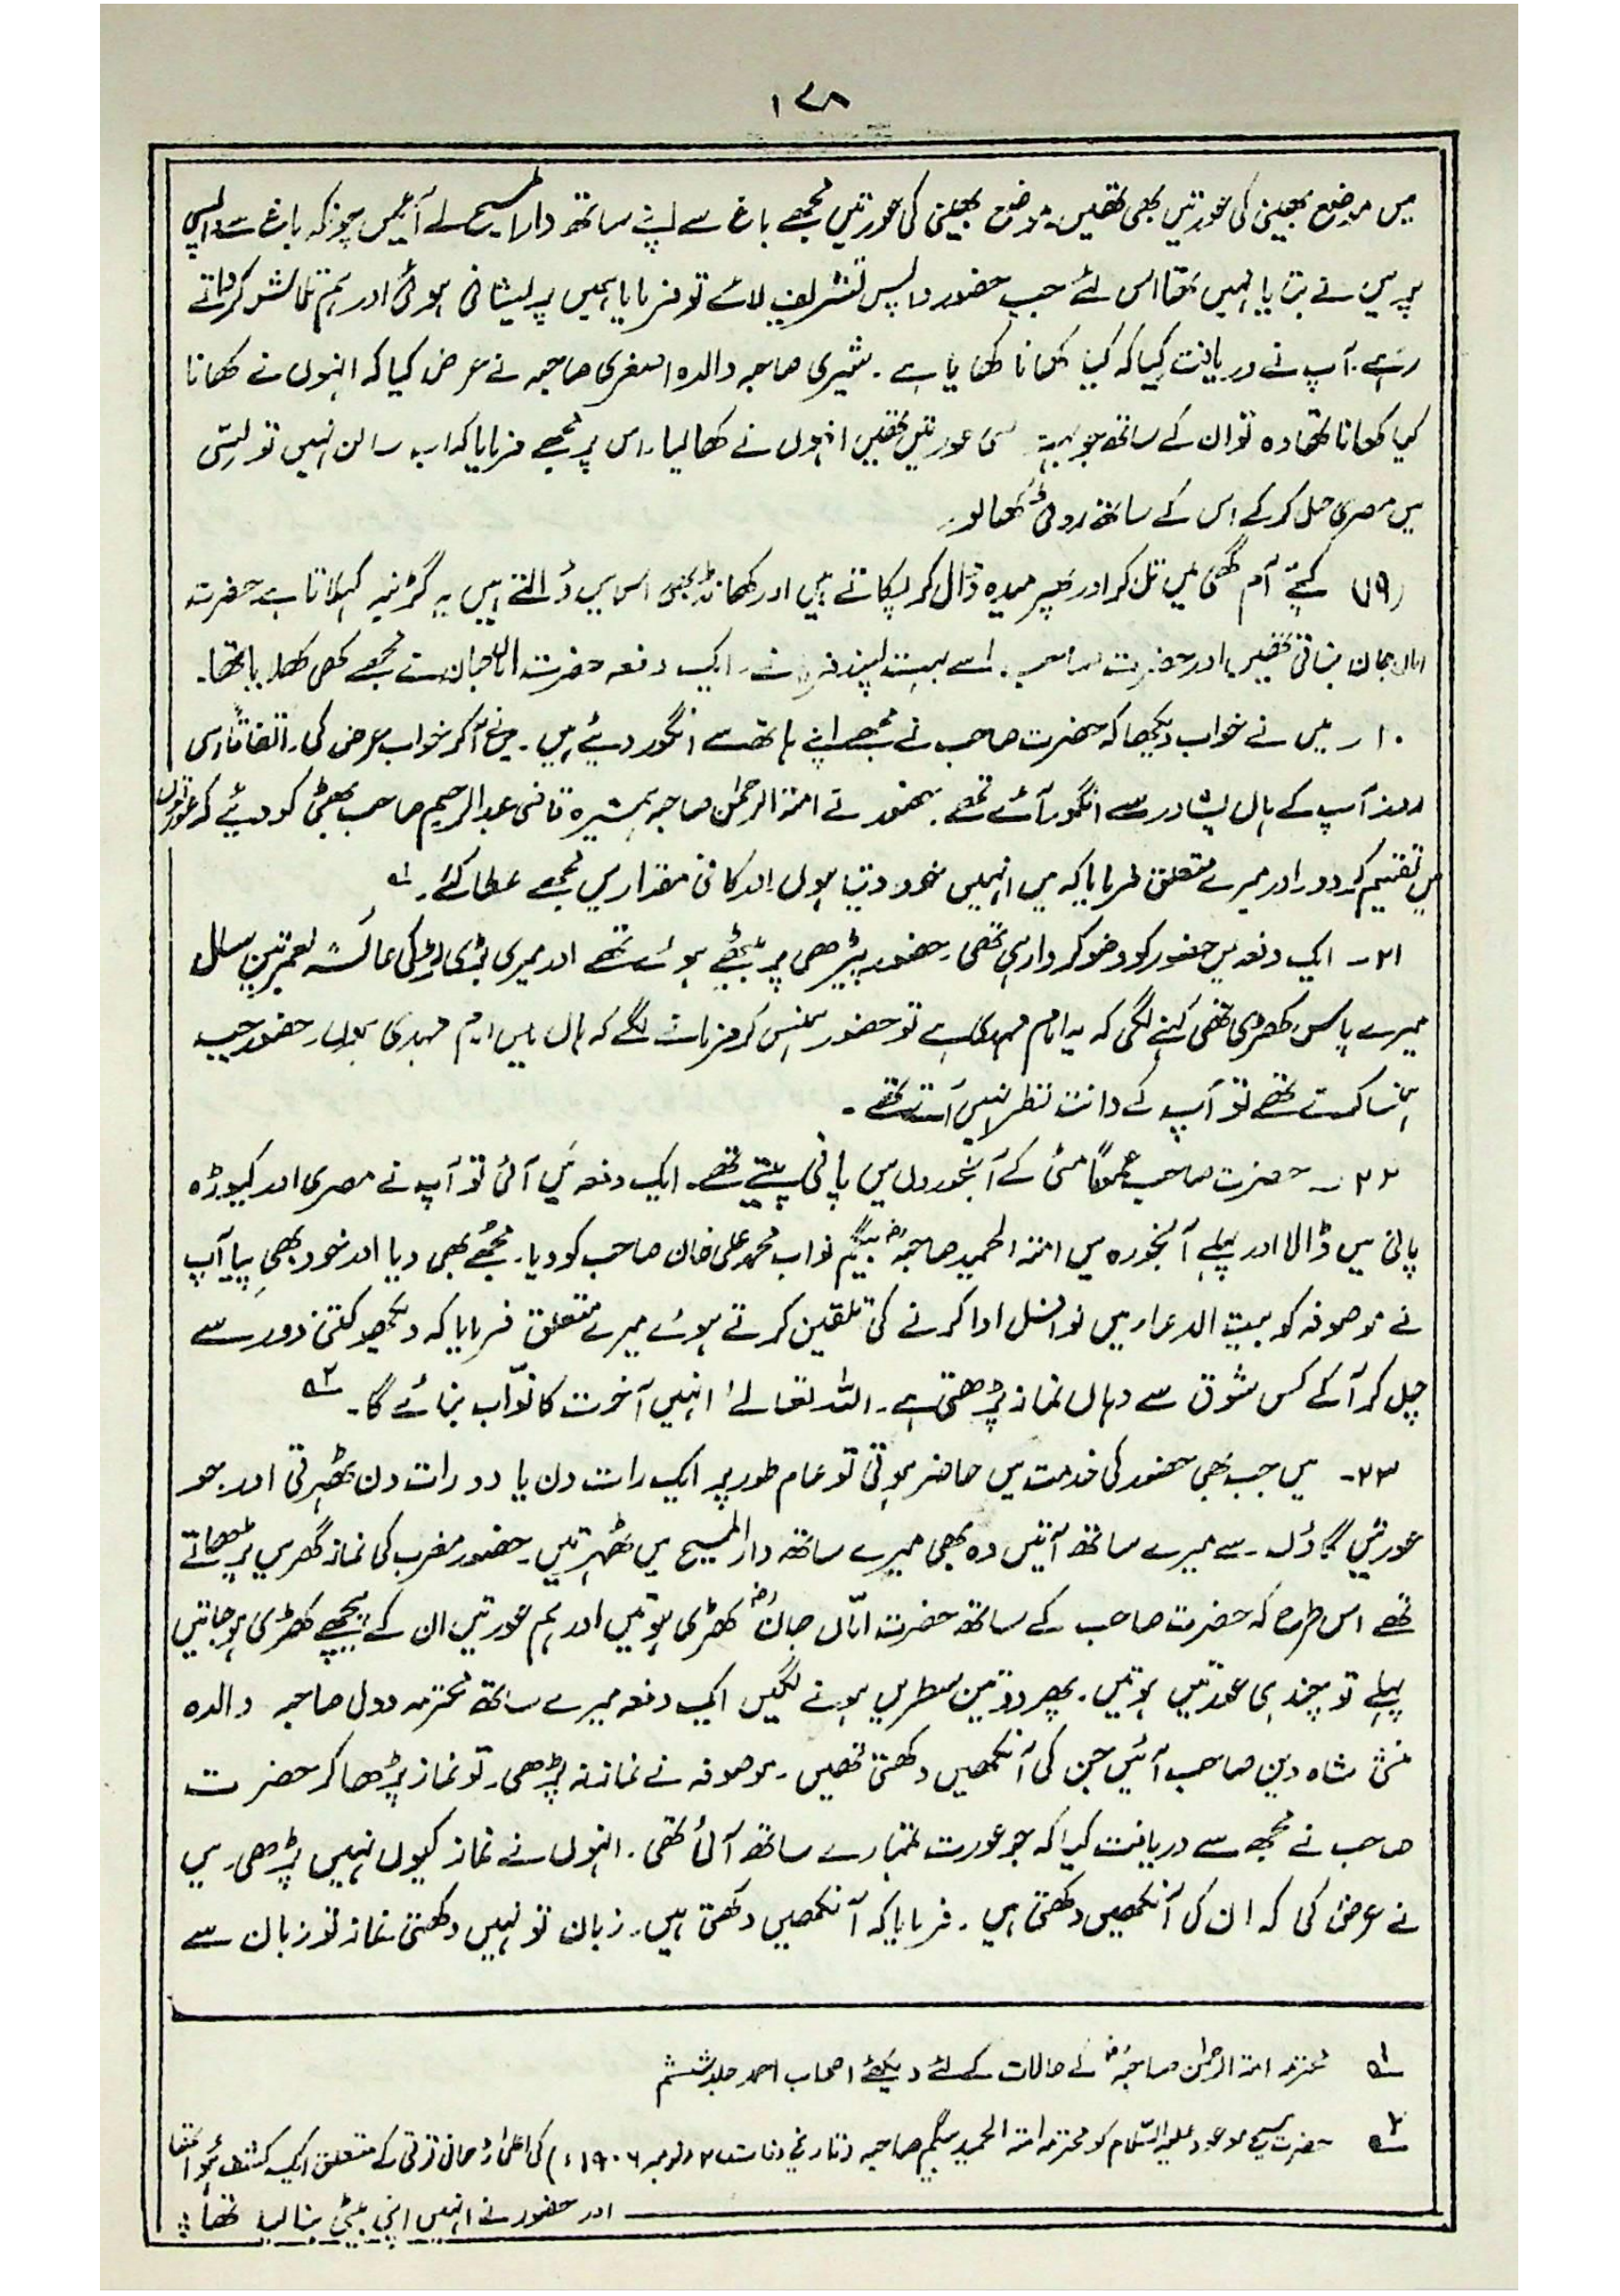 ۱۷۸
میں موضع بھینی کی عورتیں بھی تھیں۔ موضع بھینی کی عورتیں مجھے باغ سے اپنے ساتھ دار المسیح لے آئیں چونکہ باغ سے واپسی
پر میں نے بتایا نہیں تھا اس لئے جب حضور واپس تشریف لائے تو فرمایا ہمیں پریشانی ہوئی اور ہم تلاش کرواتے
رہے۔ آپ نے دریافت کیا کہ کیا کھانا کھایا ہے۔ شیری صاحبہ والدہ اصغری صاحبہ نے عرض کیا کہ انہوں نے کھانا
کیا کھانا تھا وہ تو ان کے ساتھ جو بہت سی عورتیں تھیں انہوں نے کھا لیا۔ اس پر مجھے فرمایا کہ اب سالن نہیں تو لسّی
میں مصری حل کر کے اس کے ساتھ روٹی کھا لو۔
(۱۹) کچّے آم گھی میں تل کر اور پھر میدہ ڈال کر پکاتے ہیں اور کھانڈ بھی اس میں ڈالتے ہیں یہ گڑنبہ کہلاتا ہے حضرت
اماں جان بناتی تھیں اور حضرت صاحب اسے بہت پسند فرماتے۔ ایک دفعہ حضرت اماں جان نے مجھے بھی کھلایا تھا۔
۲۰۔ میں نے خواب دیکھا کہ حضرت صاحب نے مجھے اپنے ہاتھ سے انگور دیئے ہیں۔ میں نے آکر خواب عرض کی۔ اتفاقاً اسی
روز آپ کے ہاں پشاور سے انگور آئے تھے۔ حضور نے امۃ الرحمٰن صاحبہ ہمشیرہ قاضی عبدالرحیم صاحب بھٹی کو دیئے کہ عورتوں
میں تقسیم کر دو۔ اور میرے متعلق فرمایا کہ میں انہیں خود دیتا ہوں اور کافی مقدار میں مجھے عطا کئے۔ ؎۱
۲۱۔ ایک دفعہ میں حضور کو وضو کروا رہی تھی۔ حضور پیڑھی پر بیٹھے ہوئے تھے اور میری بڑی لڑکی عائشہ بعمر تین سال
میرے پاس کھڑی تھی کہنے لگی کہ یہ امام مہدی ہے تو حضور ہنس کر فرمانے لگے کہ ہاں میں امام مہدی ہوں۔ حضور جب
ہنسا کرتے تھے تو آپ کے دانت نظر نہیں آتے تھے۔
۲۲۔ حضرت صاحب عموماً مٹی کے آبخوروں میں پانی پیتے تھے۔ ایک دفعہ میں آئی تو آپ نے مصری اور کیوڑہ
پانی میں ڈالا اور پہلے آبخورہ میں امۃ الحمید صاحبہؓ بیگم نواب محمد علی خان صاحب کو دیا۔ مجھے بھی دیا اور خود بھی پیا۔ آپ
نے موصوفہ کو بیت الدعاء میں نوافل ادا کرنے کی تلقین کرتے ہوئے میرے متعلق فرمایا کہ دیکھو کتنی دور سے
چل کر آکے کس شوق سے وہاں نماز پڑھتی ہے۔ اللہ تعالےٰ انہیں آخرت کا نوّاب بنائے گا۔ ؎۲
۲۳۔ میں جب بھی حضور کی خدمت میں حاضر ہوتی تو عام طور پر ایک رات دن یا دو رات دن ٹھہرتی اور جو
عورتیں گاؤں سے میرے ساتھ آتیں وہ بھی میرے ساتھ دار المسیح میں ٹھہرتیں۔ حضور مغرب کی نماز گھر میں پڑھاتے
تھے اس طرح کہ حضرت صاحب کے ساتھ حضرت امّاں جانؓ کھڑی ہوتیں اور ہم عورتیں ان کے پیچھے کھڑی ہو جاتیں
پہلے تو چند ہی عورتیں ہوتیں۔ پھر دو تین سطریں ہونے لگیں ایک دفعہ میرے ساتھ محترمہ دولں صاحبہ والدہ
منشی شاہ دین صاحب آئیں جن کی آنکھیں دکھتی تھیں۔ موصوفہ نے نماز نہ پڑھی۔ تو نماز پڑھا کر حضرت
صاحب نے مجھ سے دریافت کیا کہ جو عورت تمہارے ساتھ آئی تھی۔ انہوں نے نماز کیوں نہیں پڑھی۔ میں
نے عرض کی کہ ان کی آنکھیں دکھتی ہیں۔ فرمایا کہ آنکھیں دکھتی ہیں۔ زبان تو نہیں دکھتی نماز تو زبان سے
؎۱ محترمہ امۃ الرحمٰن صاحبہؓ کے حالات کے لئے دیکھئے اصحاب احمد جلد ششم
؎۲ حضرت مسیح موعود علیہ السّلام کو محترمہ امۃ الحمید بیگم صاحبہ (تاریخ وفات ۲۷ نومبر ۱۹۰۶ء) کی اعلیٰ روحانی ترقی کے متعلق ایک کشف ہوا تھا
اور حضور نے انہیں اپنی بیٹی بنا لیا تھا